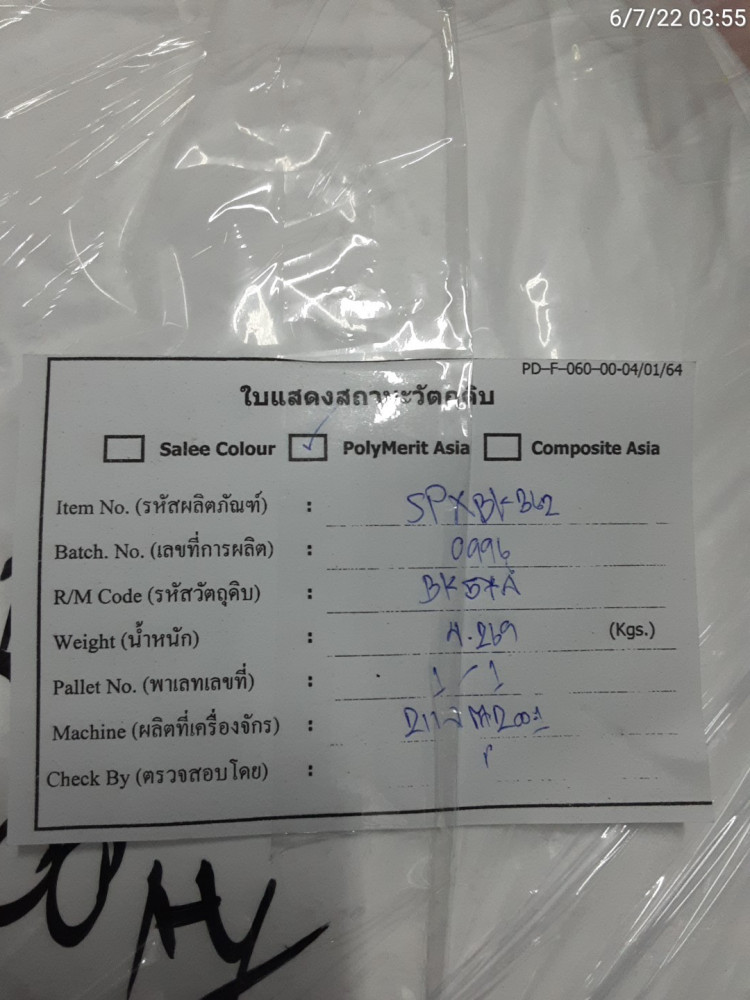 6/7/22 03:55
PD-F-060-00-04/01/64
ใบแสดงสถานะวัตถุดิบ
Salee Colour PolyMerit Asia Composite Asia
Item No. (รหัสผลิตภัณฑ์) : SPXBK362
Batch. No. (เลขที่การผลิต) : 0996
R/M Code (รหัสวัตถุดิบ) : BK57A
Weight (น้ำหนัก) : 4.269 (Kgs.)
Pallet No. (พาเลทเลขที่) : 1/1
Machine (ผลิตที่เครื่องจักร) :
Check By (ตรวจสอบโดย) :